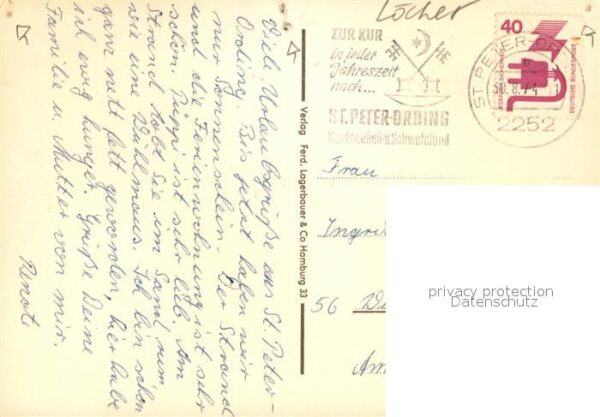 Viele Urlaubsgrüße aus St. Peter-
Ording. Bis jetzt haben wir
nur Sonnenschein. Der Strand
und die Ferienwohnung ist sehr
schön. ist sehr lieb. Am
Strand tobt Sie im Sand rum
wie eine Wühlmaus. Ich bin schon
ganz nett fett geworden, hier habe
ich ewig hunger. Grüße Deine
Familie u. Mutter von mir.
Renate
Verlag Ferd. Lagerbauer & Co Hamburg 33
Löcher
ZUR KUR
in jeder
Jahreszeit
nach...
ST. PETER-ORDING
Nordseeheil- u. Schwefelbad
ST. PETER-ORDING
b
30.8.74
2252
40
Frau
56
privacy protection
Datenschutz